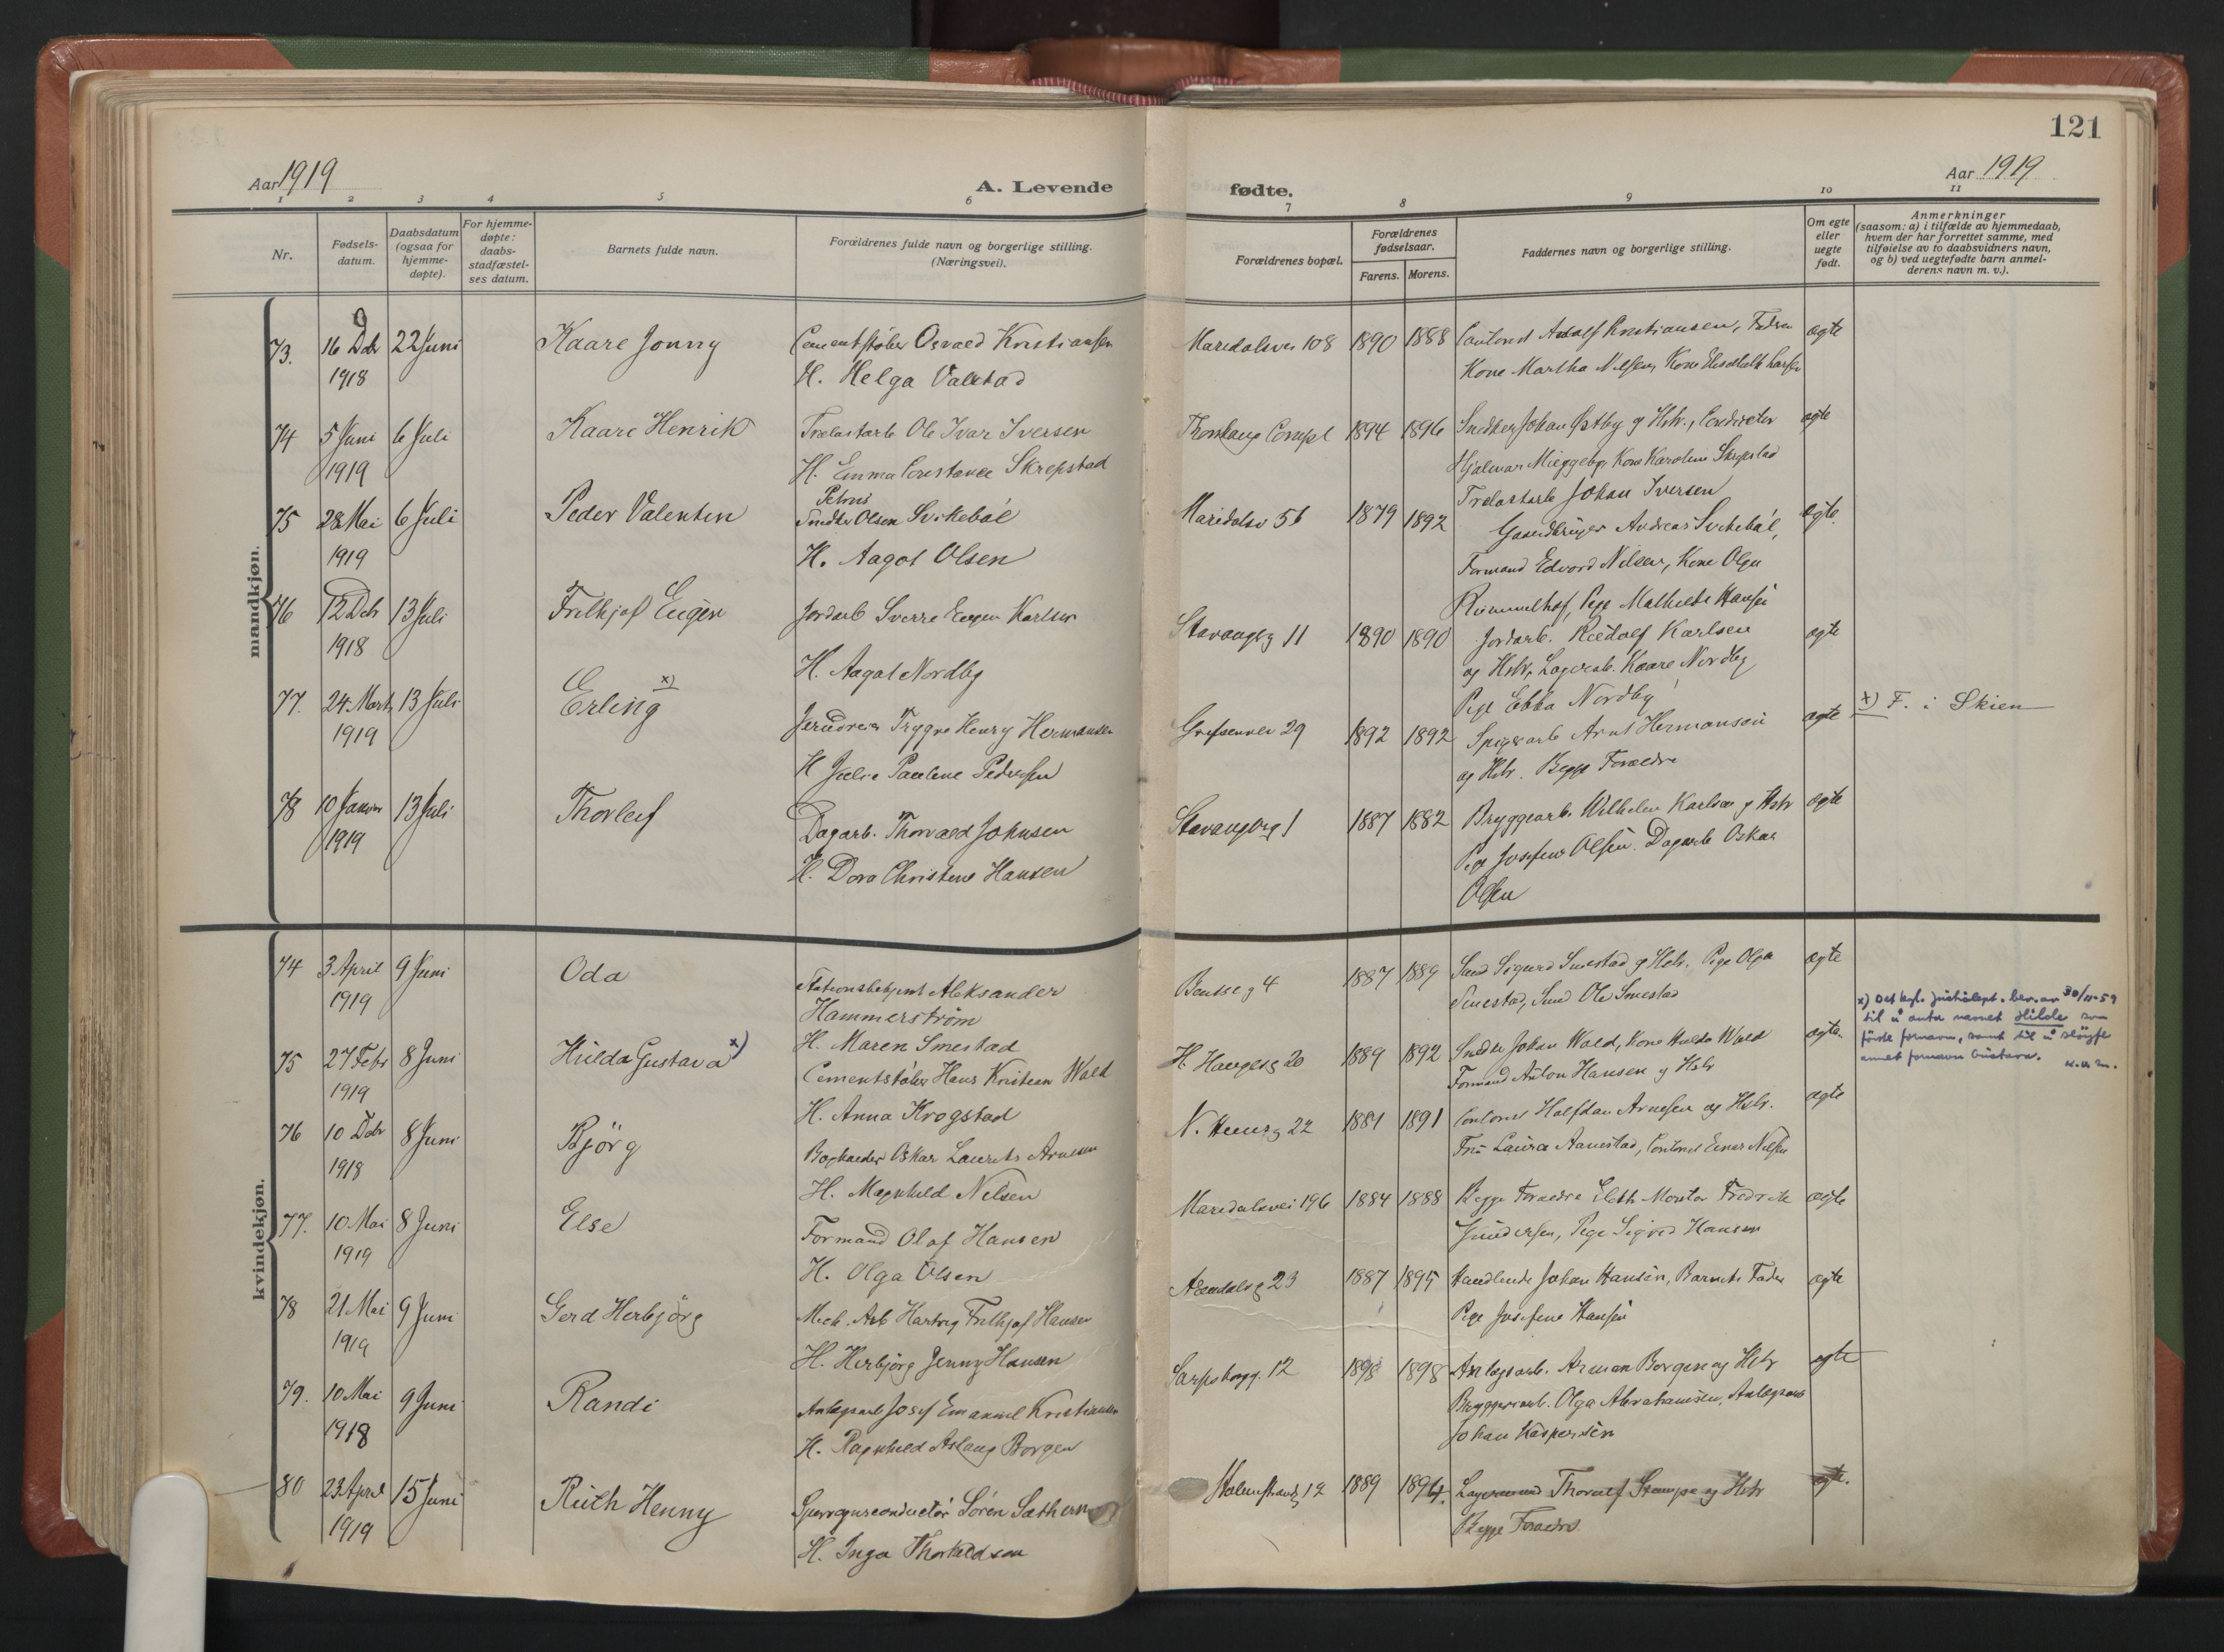 121
Aar 1919
A. Levende
fødte.
Aar 1919
1 2 3 4 5 6 7 8 9 10 11
Nr.
Fødsels-
datum.
Daabsdatum
(ogsaa for
hjemme-
døpte).
For hjemme-
døpte:
daabs-
stadfæstel-
ses datum.
Barnets fulde navn.
Forældrenes fulde navn og borgerlige stilling.
(Næringsvei).
Forældrenes bopæl.
Forældrenes
fødselsaar.
Farens. Morens.
Faddernes navn og borgerlige stilling.
Om egte
eller
uegte
født.
Anmerkninger
(saasom: a) i tilfælde av hjemmedaab,
hvem der har forrettet samme, med
tilføielse av to daabsvidners navn,
og b) ved uegtefødte barn anmel-
derens navn m. v.).
mandkjøn.
73. 16 Debr 22 Juni Kaare Jonny Cementstøber Osvald Kristiansen Maridalsvei 108 1890 1888 Adolf Kristiansen, Faderen egte
1918 H. Helga Valstad Kone Martha Nilsen, Kone
74 5 Juni 6 Juli Kaare Henrik Trælastarb Ole Ivar Iversen 1894 1896 Snedker Johan Østby og Hstr., Conductør egte
1919 H. Emma Constance Skrepstad Hjalmar Kone Karoline Skrepstad
Trælastarb Johan Iversen
75 28 Mai 6 Juli Peder Valentin Petrus
Snedker Olsen Svikebøl Maridalsv 56 1879 1892 Andreas Svikebøl, egte.
1919 H. Aagot Olsen Formand Edvard Nilsen, Kone Olga
Pige Mathilde Hansen
76 12 Debr 13 Juli Frithjof Eugen Jordarb Sverre Eugen Karlsen Stavangerg 11 1890 1890 Jordarb. Rudolf Karlsen egte
1918 H. Aagot Nordby og Hstr, Lagerarb. Kaare Nordby
Pige Ebba Nordby
77. 24 Marts 13 Juli Erling x) Trygve Henry Hermansen Grefsenvei 29 1892 1892 Spigerarb Arnt Hermansen egte x) F. i Skien
1919 H Julie Pauline Pedersen og Hstr. Begge Forældre
78 10 Januar 13 Juli Thorleif Dagarb. Thorvald Johnsen Stavangerg 1 1887 1882 Bryggearb. Wilhelm Karlsen og Hstr egte
1919 H. Dora Christine Hansen Pige Josefine Olsen. Dagarb Oskar
Olsen
kvindekjøn.
74 3 April 9 Juni Oda Stationsbetjent Aleksander Bentseg 4 1887 1889 Smed Sigurd Smestad og Hstr. Pige Olga egte
1919 Hammerstrøm Smestad, Smed Ole Smestad
H. Maren Smestad
75 27 Febr 8 Juni Hulda Gustava x) Cementstøber Hans Kristian Wold H. Haugesg 20 1889 1892 Snedker Johan Wold, Kone Hulda Wold egte.
1919 H. Anna Krogstad Formand Anton Hansen og Hstr
x) Det kgl. justisdept. bev. av 30/11-59
til å anta navnet Hilde som
første fornavn, samt til å sløyfe
annet fornavn Gustava.
76 10 Debr 8 Juni Bjørg Bogholder Oskar Laurits Arnesen 22 1884 1891 Contorist Halfdan Arnesen og Hstr. egte
1918 H. Magnhild Nilsen Fru Laura Aanestad, Contorist Einar Nilsen
77. 10 Mai 8 Juni Else Formand Olaf Hansen Maridalsvei 196 1884 1888 Begge Forældre Elektr. Montør Fredrik egte
1919 H. Olga Olsen Gundersen, Pige Sigrid Hansen
78 21 Mai 9 Juni Gerd Herbjørg Mek. Arb Hartvig Frithjof Hansen Arendalsg 23 1887 1895 Handlende Johan Hansen, Barnets Fader egte
1919 H. Herbjørg Jenny Hansen Pige Josefine Hansen
79. 10 Mai 9 Juni Randi Anlægsarb Josef Emanuel Kristiansen Sarpsborgg. 12 1898 1898 Anlægsarb. Arman Borgen og Hstr egte
1918 H. Ragnhild Aslaug Borgen Bryggeriarb. Olga Abrahamsen, Anlægsarb
Johan Kaspersen
80 23 April 15 Juni Ruth Henny Sporveisconductør Søren Sæthern Holmestrandg 12 1889 1894. Lagermand Thoralf Stampe og Hstr egte.
1919 H. Inga Thorkildsen Begge Forældre